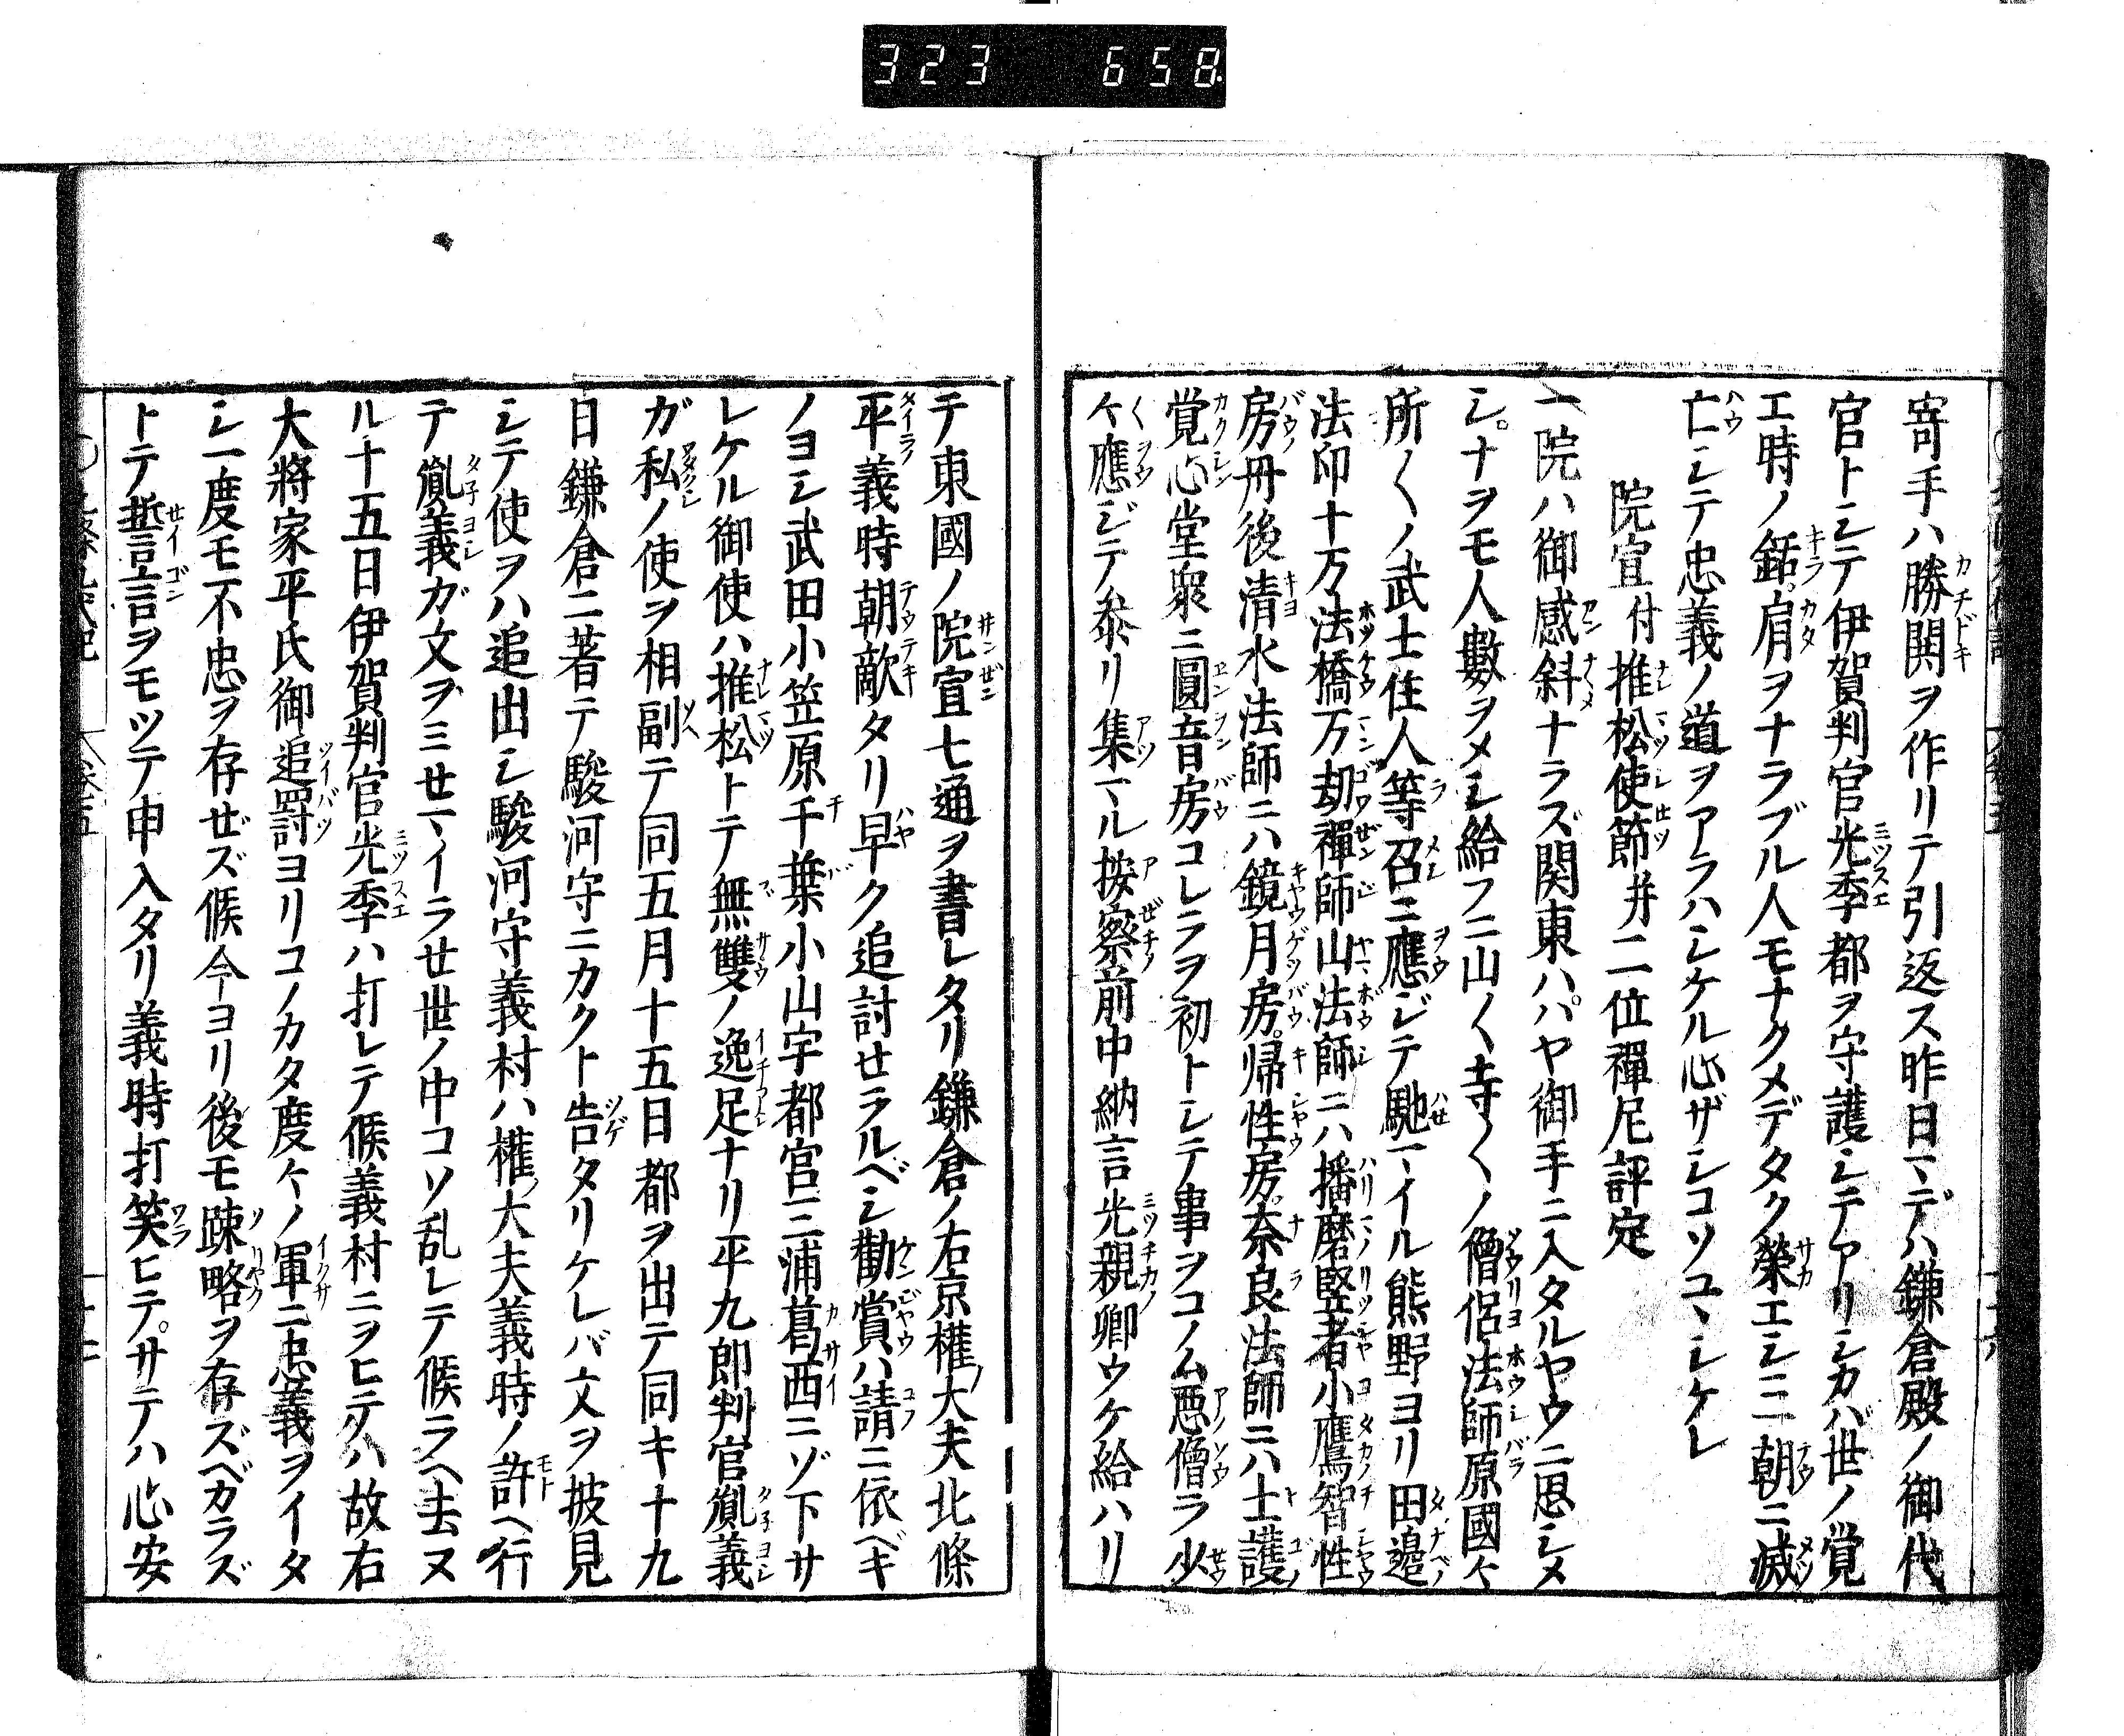 323 658
寄手ハ勝関ヲ作リテ引返ス昨日マデハ鎌倉殿ノ御代
官トシテ伊賀判官光季都ヲ守護シテアリシカバ世ノ覚
エ時ノ銛肩ヲナラブル人モナクメデタク榮エシニ一朝ニ滅
亡シテ忠義ノ道ヲアラハシケル心ザシコソユヽシケレ
院宣付推松使節并二位禪尼評定
一院ハ御感斜ナラズ関東ハハヤ御手ニ入タルヤウニ思シメ
シ。ナヲモ人數ヲメシ給フニ山〱寺〱ノ僧侶法師原國々
所〱ノ武士住人等召ニ應ジテ馳マイル熊野ヨリ田邉
法印十万法橋万劫禪師山法師ニハ播磨竪者小鷹智性
房丹後清水法師ニハ鏡月房帰性房奈良法師ニハ士護
覚心堂衆ニ圓音房コレラヲ初トシテ事ヲコノム悪僧ラ少
々應ジテ叅リ集マル按察前中納言光親卿ウケ給ハリ
テ東國ノ院宣七通ヲ書レタリ鎌倉ノ右京權大夫北條
平義時朝敵タリ早ク追討セラルベシ勸賞ハ請ニ依ベキ
ノヨシ武田小笠原千葉小山宇都宮三浦葛西ニゾ下サ
レケル御使ハ推松トテ無雙ノ逸足ナリ平九郎判官胤義
ガ私ノ使ヲ相副テ同五月十五日都ヲ出テ同キ十九
日鎌倉ニ著テ駿河守ニカクト告タリケレバ文ヲ披見
シテ使ヲハ追出シ駿河守義村ハ權大夫義時ノ許ヘ行
テ胤義ガ文ヲミセマイラせ世ノ中コソ乱レテ候ラヘ去ヌ
ル十五日伊賀判官光季ハ打レテ候義村ニヲヒテハ故右
大將家平氏御追罸ヨリコノカタ度々ノ軍ニ忠義ヲイタ
シ一度モ不忠ヲ存ゼズ候今ヨリ後モ踈略ヲ存ズベカラズ
トテ誓言ヲモツテ申入タリ義時打笑ヒテ。サテハ心安